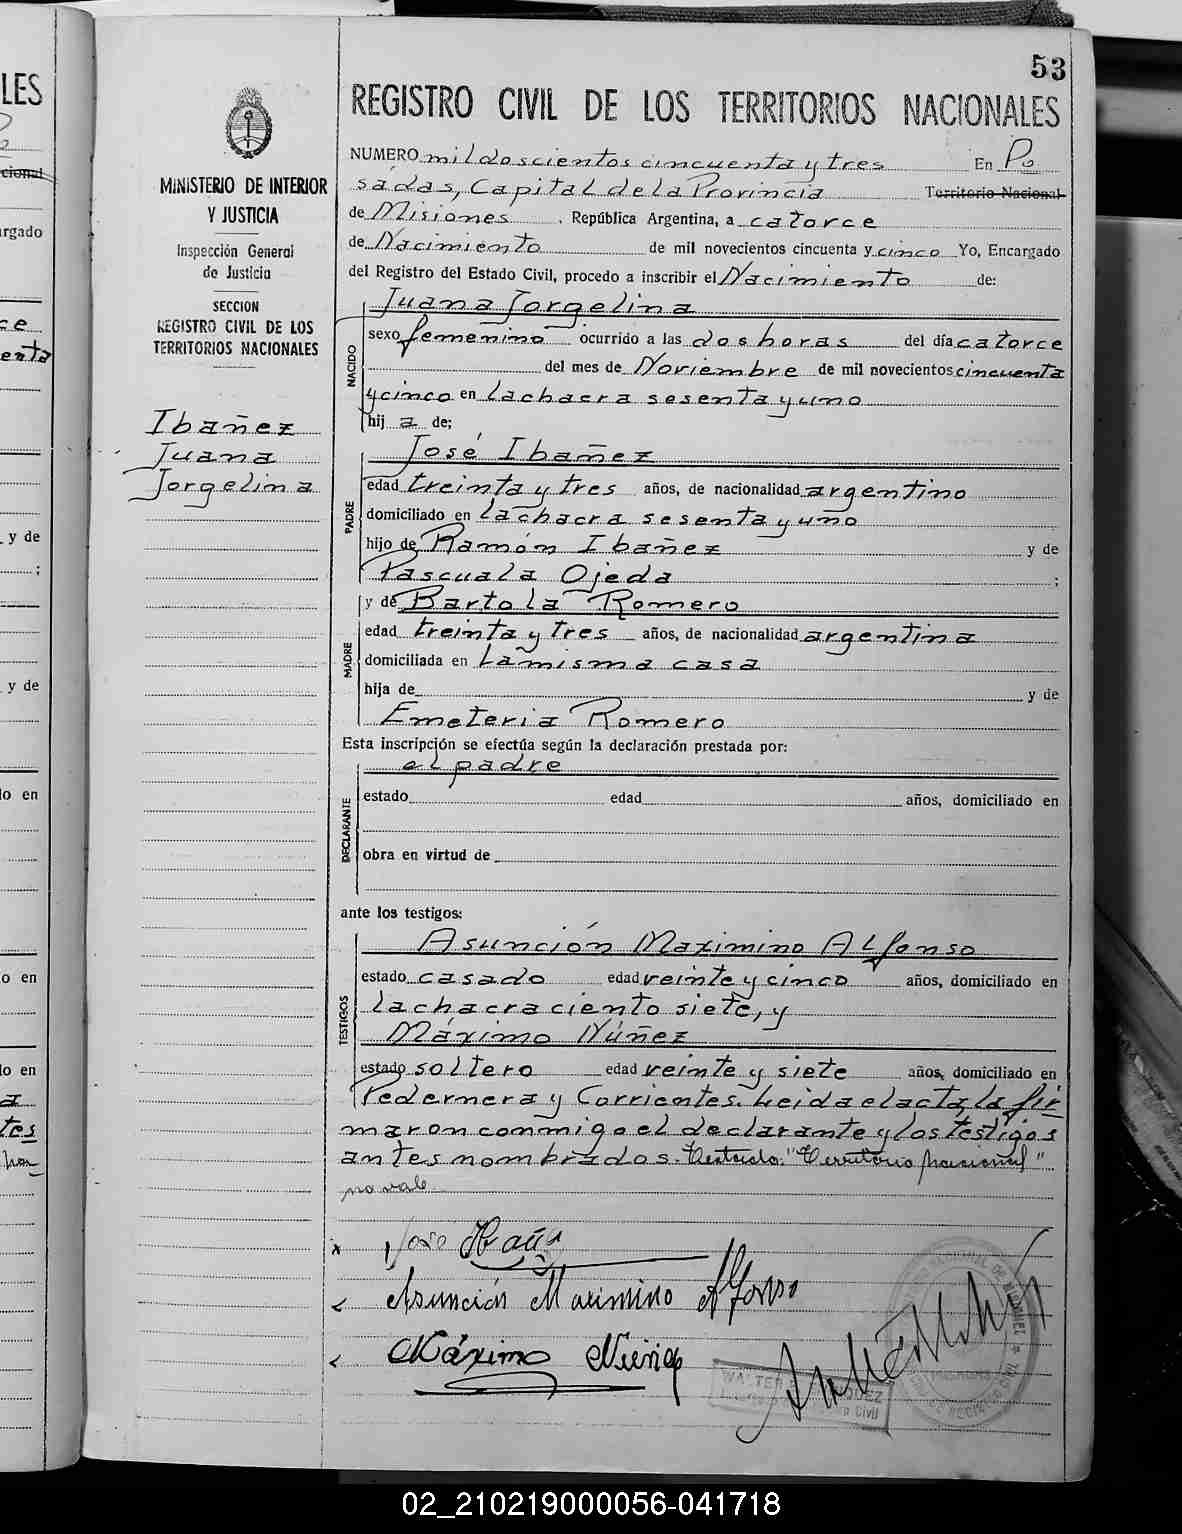 53
REGISTRO CIVIL DE LOS TERRITORIOS NACIONALES
MINISTERIO DE INTERIOR
Y JUSTICIA
Inspección General
de Justicia
SECCION
REGISTRO CIVIL DE LOS
TERRITORIOS NACIONALES
Ibañez
Juana
Jorgelina
NUMERO mil doscientos cincuenta y tres En Po
sadas, Capital de la Provincia Territorio Nacional
de Misiones, República Argentina, a catorce
de Nacimiento de mil novecientos cincuenta y cinco Yo, Encargado
del Registro del Estado Civil, procedo a inscribir el Nacimiento de:
Juana Jorgelina
NACIDO
sexo femenino ocurrido a las dos horas del día catorce
del mes de Noviembre de mil novecientos cincuenta
y cinco en la chacra sesenta y uno
hij a de;
José Ibañez
PADRE
edad treinta y tres años, de nacionalidad argentino
domiciliado en la chacra sesenta y uno
hijo de Ramón Ibañez y de
Pascuala Ojeda ;
y de Bartola Romero
MADRE
edad treinta y tres años, de nacionalidad argentina
domiciliada en la misma casa
hija de y de
Emeteria Romero
Esta inscripción se efectúa según la declaración prestada por:
el padre
DECLARANTE
estado edad años, domiciliado en
obra en virtud de
ante los testigos:
Asunción Maximino Alfonso
TESTIGOS
estado casado edad veinte y cinco años, domiciliado en
la chacra ciento siete, y
Máximo Núñez
estado soltero edad veinte y siete años, domiciliado en
Pedernera y Corrientes. Leida el acta, la fir
maron conmigo el declarante y los testigos
antes nombrados. Testado: "Territorio Nacional"
no vale
José Ibañez
Asunción Maximino Alfonso
Máximo Nuñez
WALTER
Civil
02_210219000056-041718